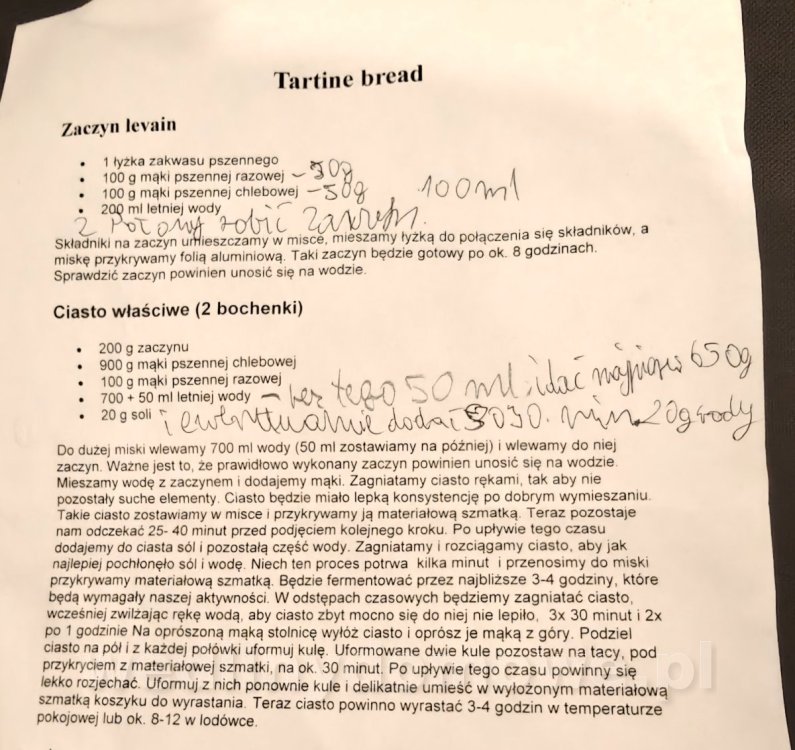 Tartine bread
Zaczyn levain
• 1 łyżka zakwasu pszennego
• 100 g mąki pszennej razowej – 50g
• 100 g mąki pszennej chlebowej – 50g 100ml
• 200 ml letniej wody
z połowy robić
Składniki na zaczyn umieszczamy w misce, mieszamy łyżką do połączenia się składników, a
miskę przykrywamy folią aluminiową. Taki zaczyn będzie gotowy po ok. 8 godzinach.
Sprawdzić zaczyn powinien unosić się na wodzie.
Ciasto właściwe (2 bochenki)
• 200 g zaczynu
• 900 g mąki pszennej chlebowej
• 100 g mąki pszennej razowej
• 700 + 50 ml letniej wody – bez tego 50 ml. najpierw 650g
• 20 g soli i ewentualnie dodać 30. min 20g wody
Do dużej miski wlewamy 700 ml wody (50 ml zostawiamy na później) i wlewamy do niej
zaczyn. Ważne jest to, że prawidłowo wykonany zaczyn powinien unosić się na wodzie.
Mieszamy wodę z zaczynem i dodajemy mąki. Zagniatamy ciasto rękami, tak aby nie
pozostały suche elementy. Ciasto będzie miało lepką konsystencję po dobrym wymieszaniu.
Takie ciasto zostawiamy w misce i przykrywamy ją materiałową szmatką. Teraz pozostaje
nam odczekać 25- 40 minut przed podjęciem kolejnego kroku. Po upływie tego czasu
dodajemy do ciasta sól i pozostałą część wody. Zagniatamy i rozciągamy ciasto, aby jak
najlepiej pochłonęło sól i wodę. Niech ten proces potrwa kilka minut i przenosimy do miski
przykrywamy materiałową szmatką. Będzie fermentować przez najbliższe 3-4 godziny, które
będą wymagały naszej aktywności. W odstępach czasowych będziemy zagniatać ciasto,
wcześniej zwilżając rękę wodą, aby ciasto zbyt mocno się do niej nie lepiło, 3x 30 minut i 2x
po 1 godzinie Na oprószoną mąką stolnicę wyłóż ciasto i oprósz je mąką z góry. Podziel
ciasto na pół i z każdej połówki uformuj kulę. Uformowane dwie kule pozostaw na tacy, pod
przykryciem z materiałowej szmatki, na ok. 30 minut. Po upływie tego czasu powinny się
lekko rozjechać. Uformuj z nich ponownie kule i delikatnie umieść w wyłożonym materiałową
szmatką koszyku do wyrastania. Teraz ciasto powinno wyrastać 3-4 godzin w temperaturze
pokojowej lub ok. 8-12 w lodówce.